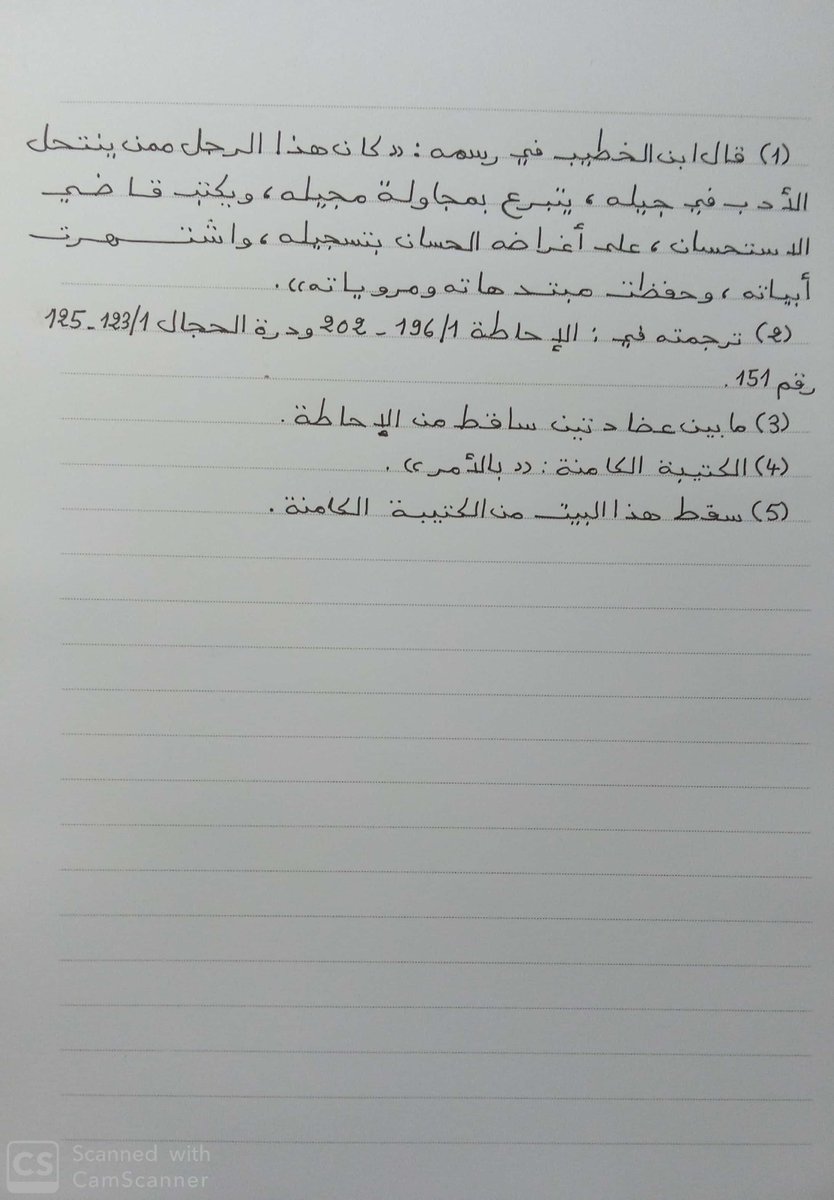 (1) قال ابن الخطيب في رسمه: «كان هذا الرجل ممن ينتحل
الأدب في جيله، يتبرع بمجاولة مجيله، ويكتب قاضي
الاستحسان، على أغراضه الحسان بتسجيله، واشتهرت
أبياته، وحفظت مبتدهاته ومروياته».
(2) ترجمته في: الإحاطة 196/1 - 202 ودرة الحجال 123/1-125
رقم 151.
(3) ما بين عضادتين ساقط من الإحاطة.
(4) الكتيبة الكامنة: «بالأمر».
(5) سقط هذا البيت من الكتيبة الكامنة.
CS Scanned with
CamScanner